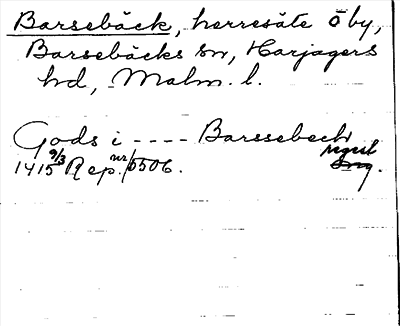 Barsebäck, herresäte o by,
Barsebäcks sn, Harjagers
hd, Malm. l.
Gods i ---- Barssebech
1415 9/3 Rep. nr 5506. regist